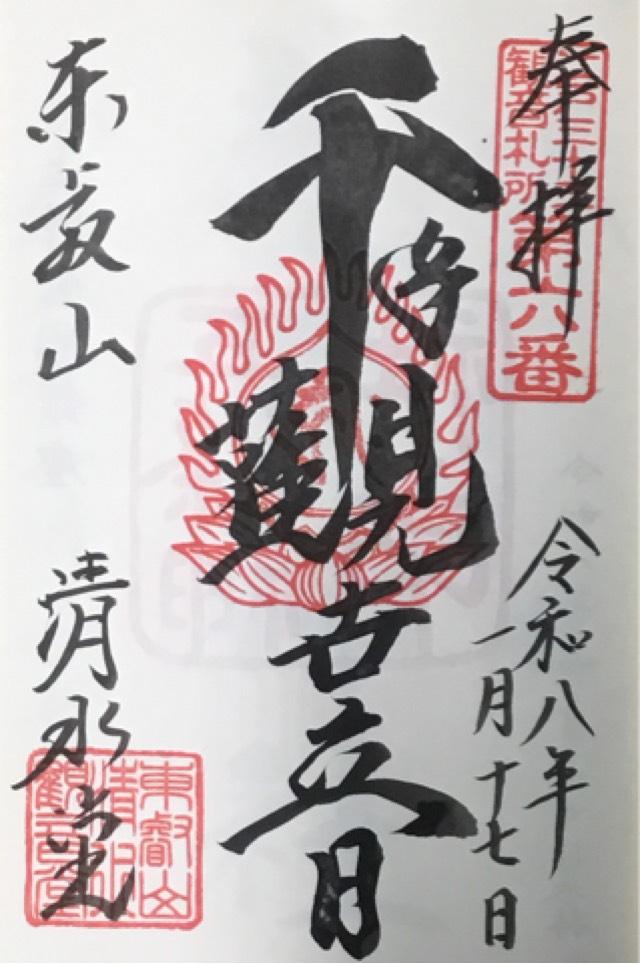 奉拝
観音札所第六番
令和八年
一月十七日
千手觀世音
東叡山 清水堂
東叡山
清水
観音堂